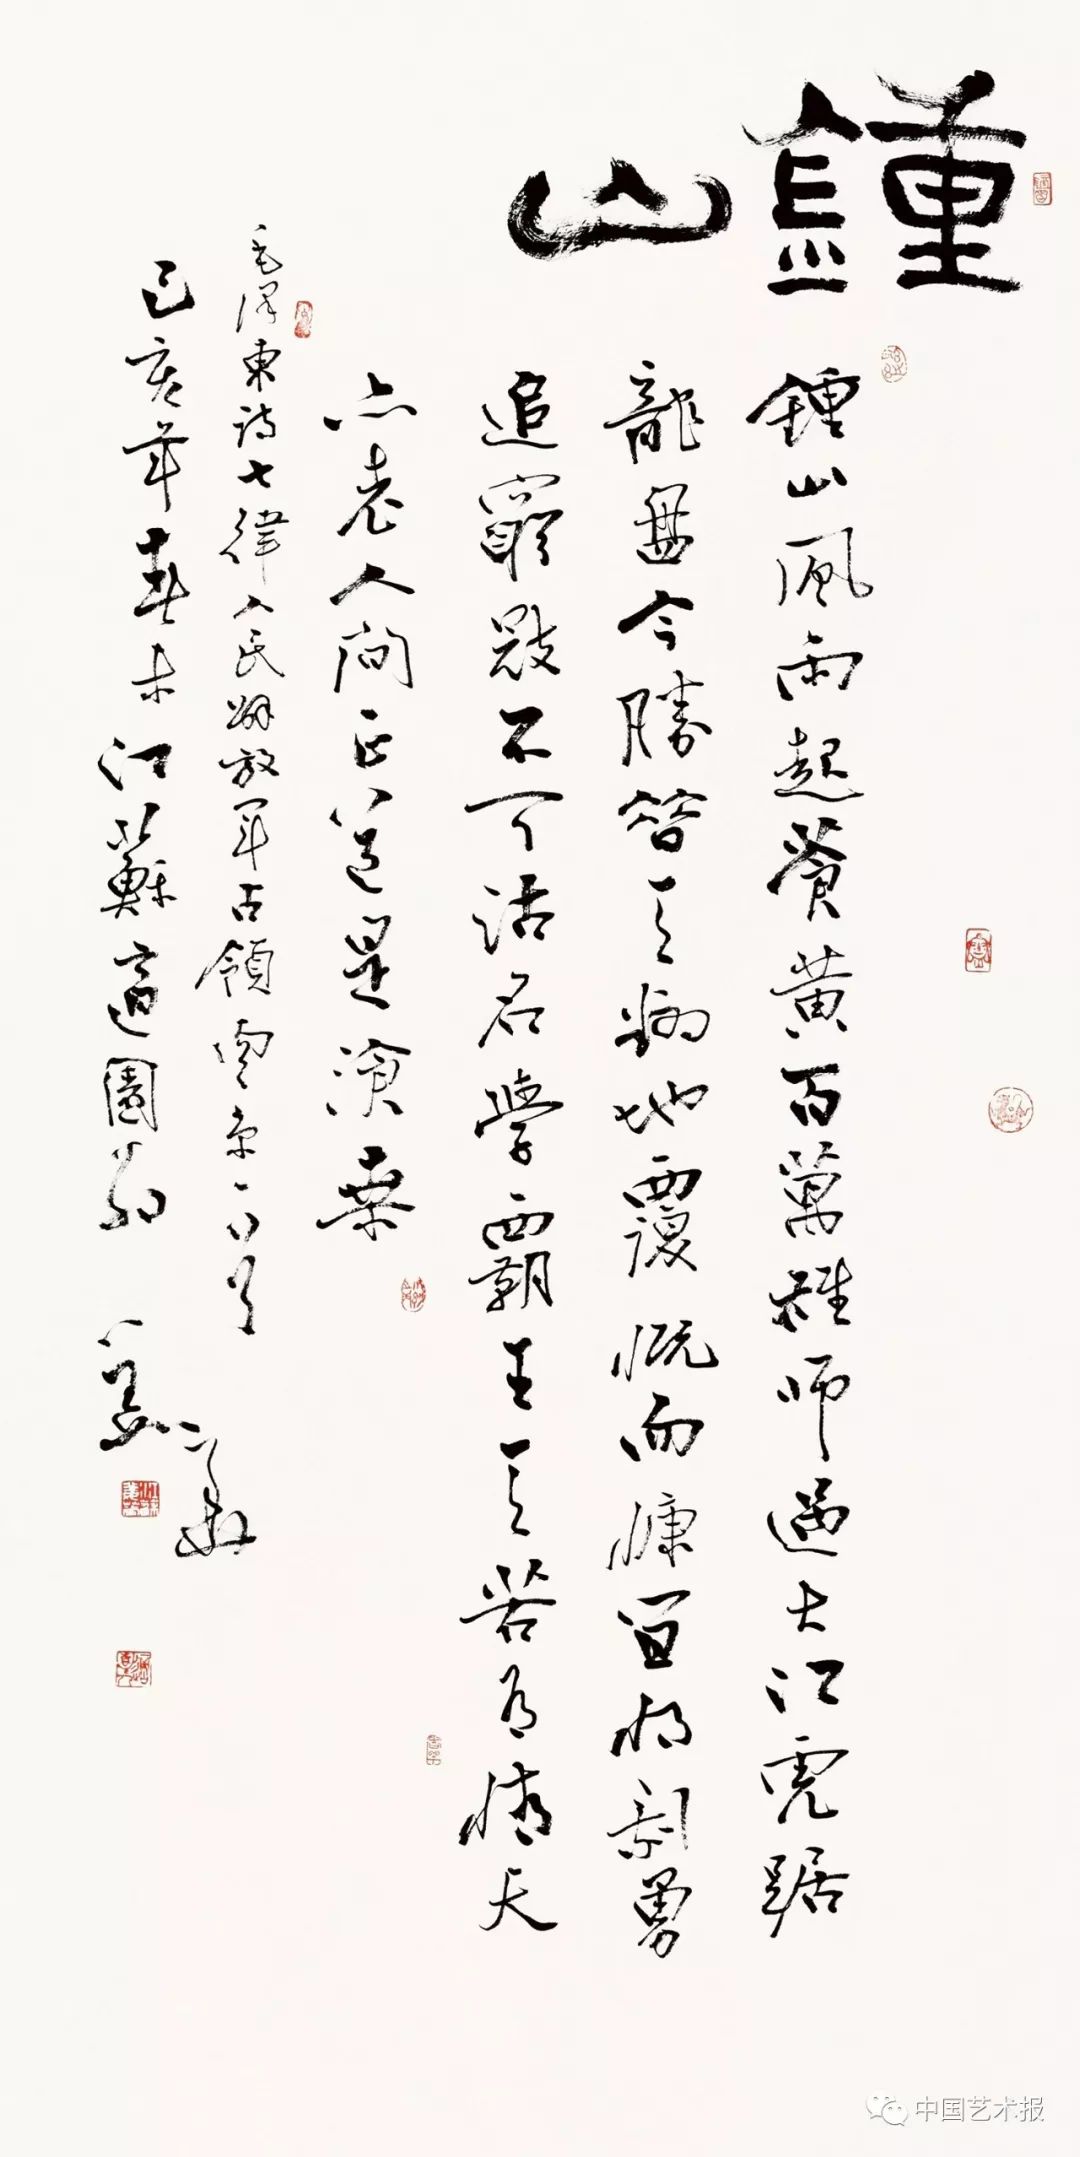 鍾山
鍾山風雨起蒼黃百萬雄師過大江虎踞
龍盤今勝昔天翻地覆慨而慷宜將剩勇
追窮敵不可沽名學霸王天若有情天
亦老人間正道是滄桑
毛澤東詩七律人民解放軍占領南京一首
己亥年春末江蘇適園翁
中国艺术报